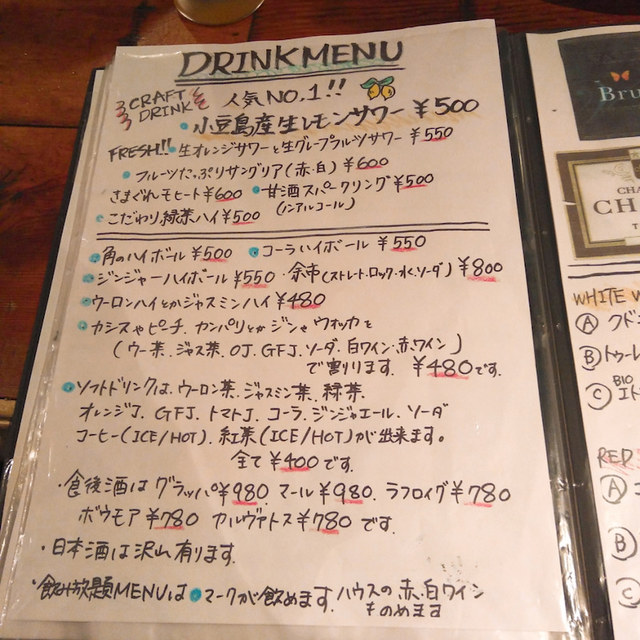 DRINKMENU
CRAFT DRINK 人気NO.1!!
小豆島産生レモンサワー ¥500
FRESH!! 生オレンジサワーと生グレープフルーツサワー ¥550
フルーツたっぷりサングリア(赤・白) ¥600
きまぐれモヒート¥600 甘酒スパークリング¥500
こだわり緑茶ハイ¥500 (ノンアルコール)
角のハイボール ¥500 コーラハイボール ¥550
ジンジャーハイボール ¥550 余市(ストレート・ロック・水・ソーダ) ¥800
ウーロンハイとかジャスミンハイ ¥480
カシスやピーチ、カンパリとかジンやウォッカを
(ウー茶、ジャス茶、OJ、GFJ、ソーダ、白ワイン・赤ワイン)
で割ります、¥480です。
ソフトドリンクは、ウーロン茶、ジャスミン茶、緑茶、
オレンジJ、GFJ、トマトJ、コーラ、ジンジャエール、ソーダ
コーヒー(ICE/HOT)、紅茶(ICE/HOT)が出来ます。
全て¥400です。
・食後酒は グラッパ¥980 マール¥980、ラフロイグ¥780
ボウモア¥780 カルヴァトス¥780 です。
・日本酒は沢山有ります。
・飲み放題MENUは●マークが飲めます。ハウスの赤、白ワイン
ものめます
Bru
CHA
CH
WHITE W
Ⓐ クド
Ⓑ トゥーレ
Ⓒ BIO エト
RED
Ⓐ
Ⓑ
Ⓒ